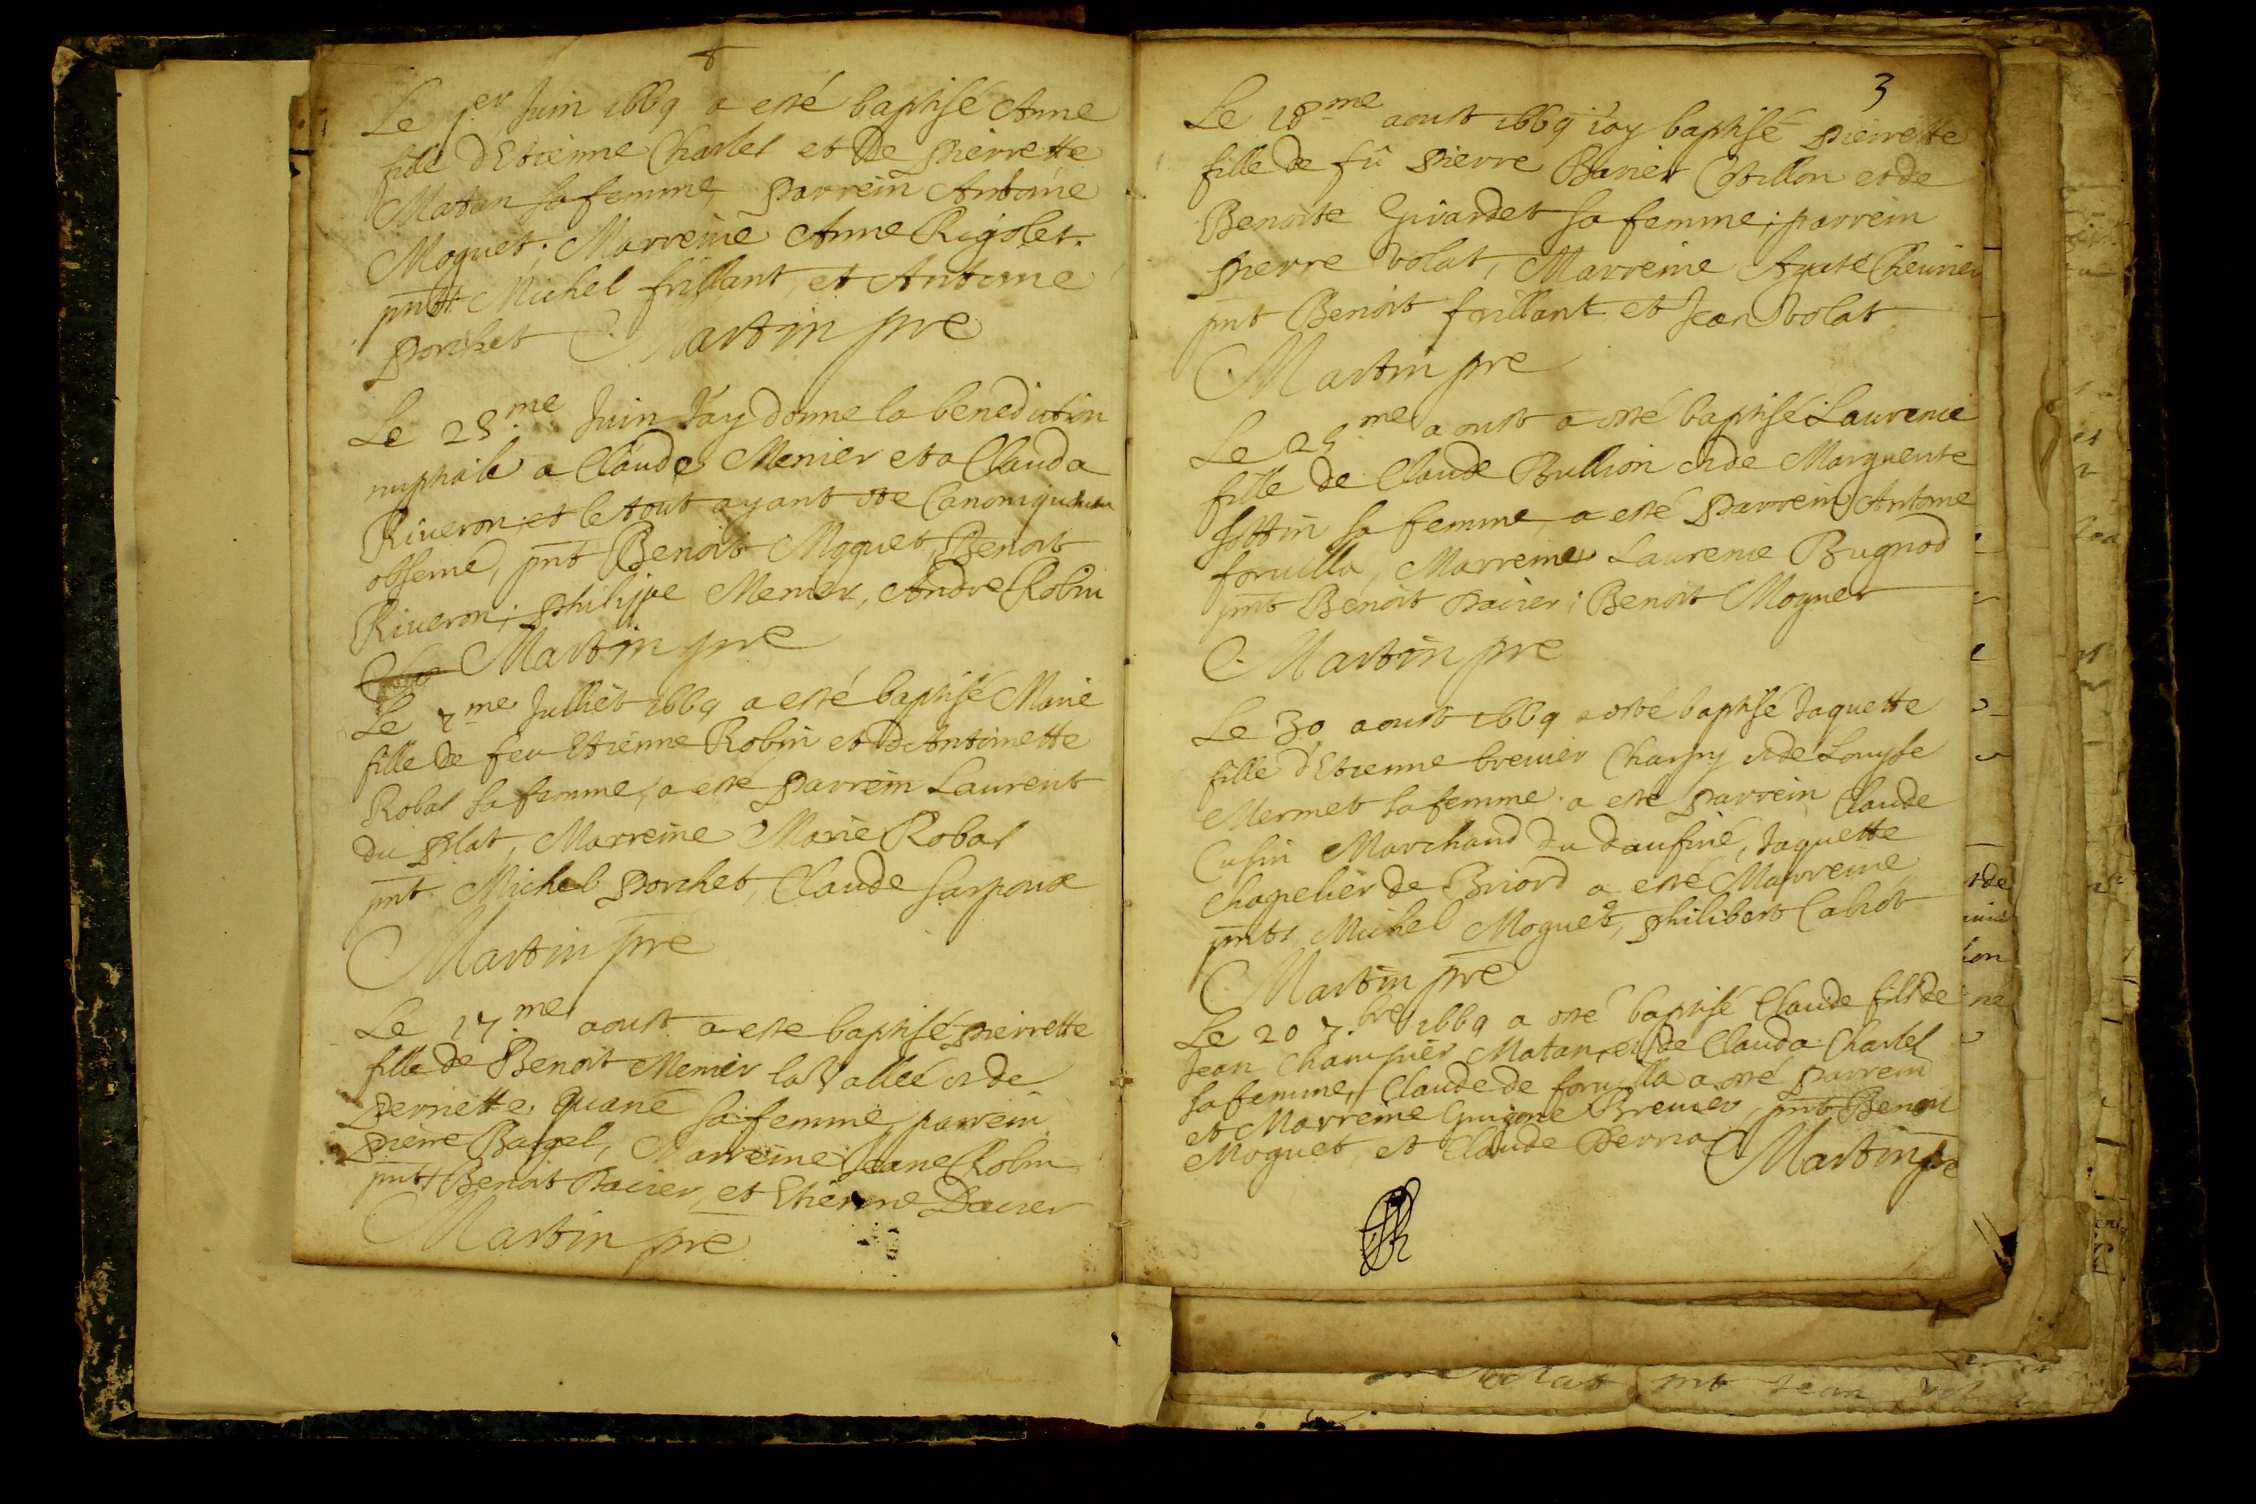 Le 1.er Juin 1669 a esté baptisé Anne
fille d'Etienne Charlet et De Pierrette
Matan sa femme, Parrein Antoine
Moguet; Marreine Anne Rigolet.
pnts Michel frillant, et Antoine
Porchet Martin pre
Le 25.me Juin J'ay donne la benediction
nuptiale a Claude Menier et a Clauda
Riveron; et le tout ayant esté Canoniquement
observé, pnt Benoit Moguet, Benoit
Riveron; Philippe Menier, André Robin
Martin pre
Le 7.me Julliet 1669 a esté baptisé Marie
fille de feu Etienne Robin et D'Antoinette
Robat sa femme, a esté Parrein Laurent
du Plat, Marreine Marie Robat
pnt Michel Porchet, Claude Sarpoux
Martin pre
Le 17.me aoust a este baptisé Pierrette
fille de Benoit Menier la Vallée et de
Pernette Quane sa femme, parrein
Pierre Bagel, Marreine Jeane Robin
pnts Benoit Pacier, et Etienne Dacier
Martin pre
3
Le 18.me aoust 1669 j'ay baptisé Pierrette
fille de fû Pierre Banier Cotillon et de
Benoite Girardet sa femme; parrein
Pierre Volat, Marreine Agate Chevrier
pnt Benoit frillant et Jean Volat
Martin pre
Le 25.me aoust a esté baptisé Laurence
fille de Claude Bullion et de Marguerite
Sottin sa femme, a esté Parrein Antoine
foruilla, Marreine Laurence Bugnod
pnt Benoit Pacier; Benoit Moguet
Martin pre
Le 30 aoust 1669 a esté baptisé Jaquette
fille d'Etienne brevier Charpy et de Louyse
Mermet sa femme. a esté parrein Claude
Cusin Marchand du daufiné, Jaquette
Chapelier de Briord a esté Marreine
pnts Michel Moguet, Philibert Cahot
Martin pre
Le 20 7.bre 1669 a esté baptisé Claude fils de
Jean Champier Matan, et de Clauda Charlet
sa femme, Claude de foruilla a esté Parrein
et Marreine Guigone Brevier, pnt Benoit
Moguet, et Claude Perria Martin pre